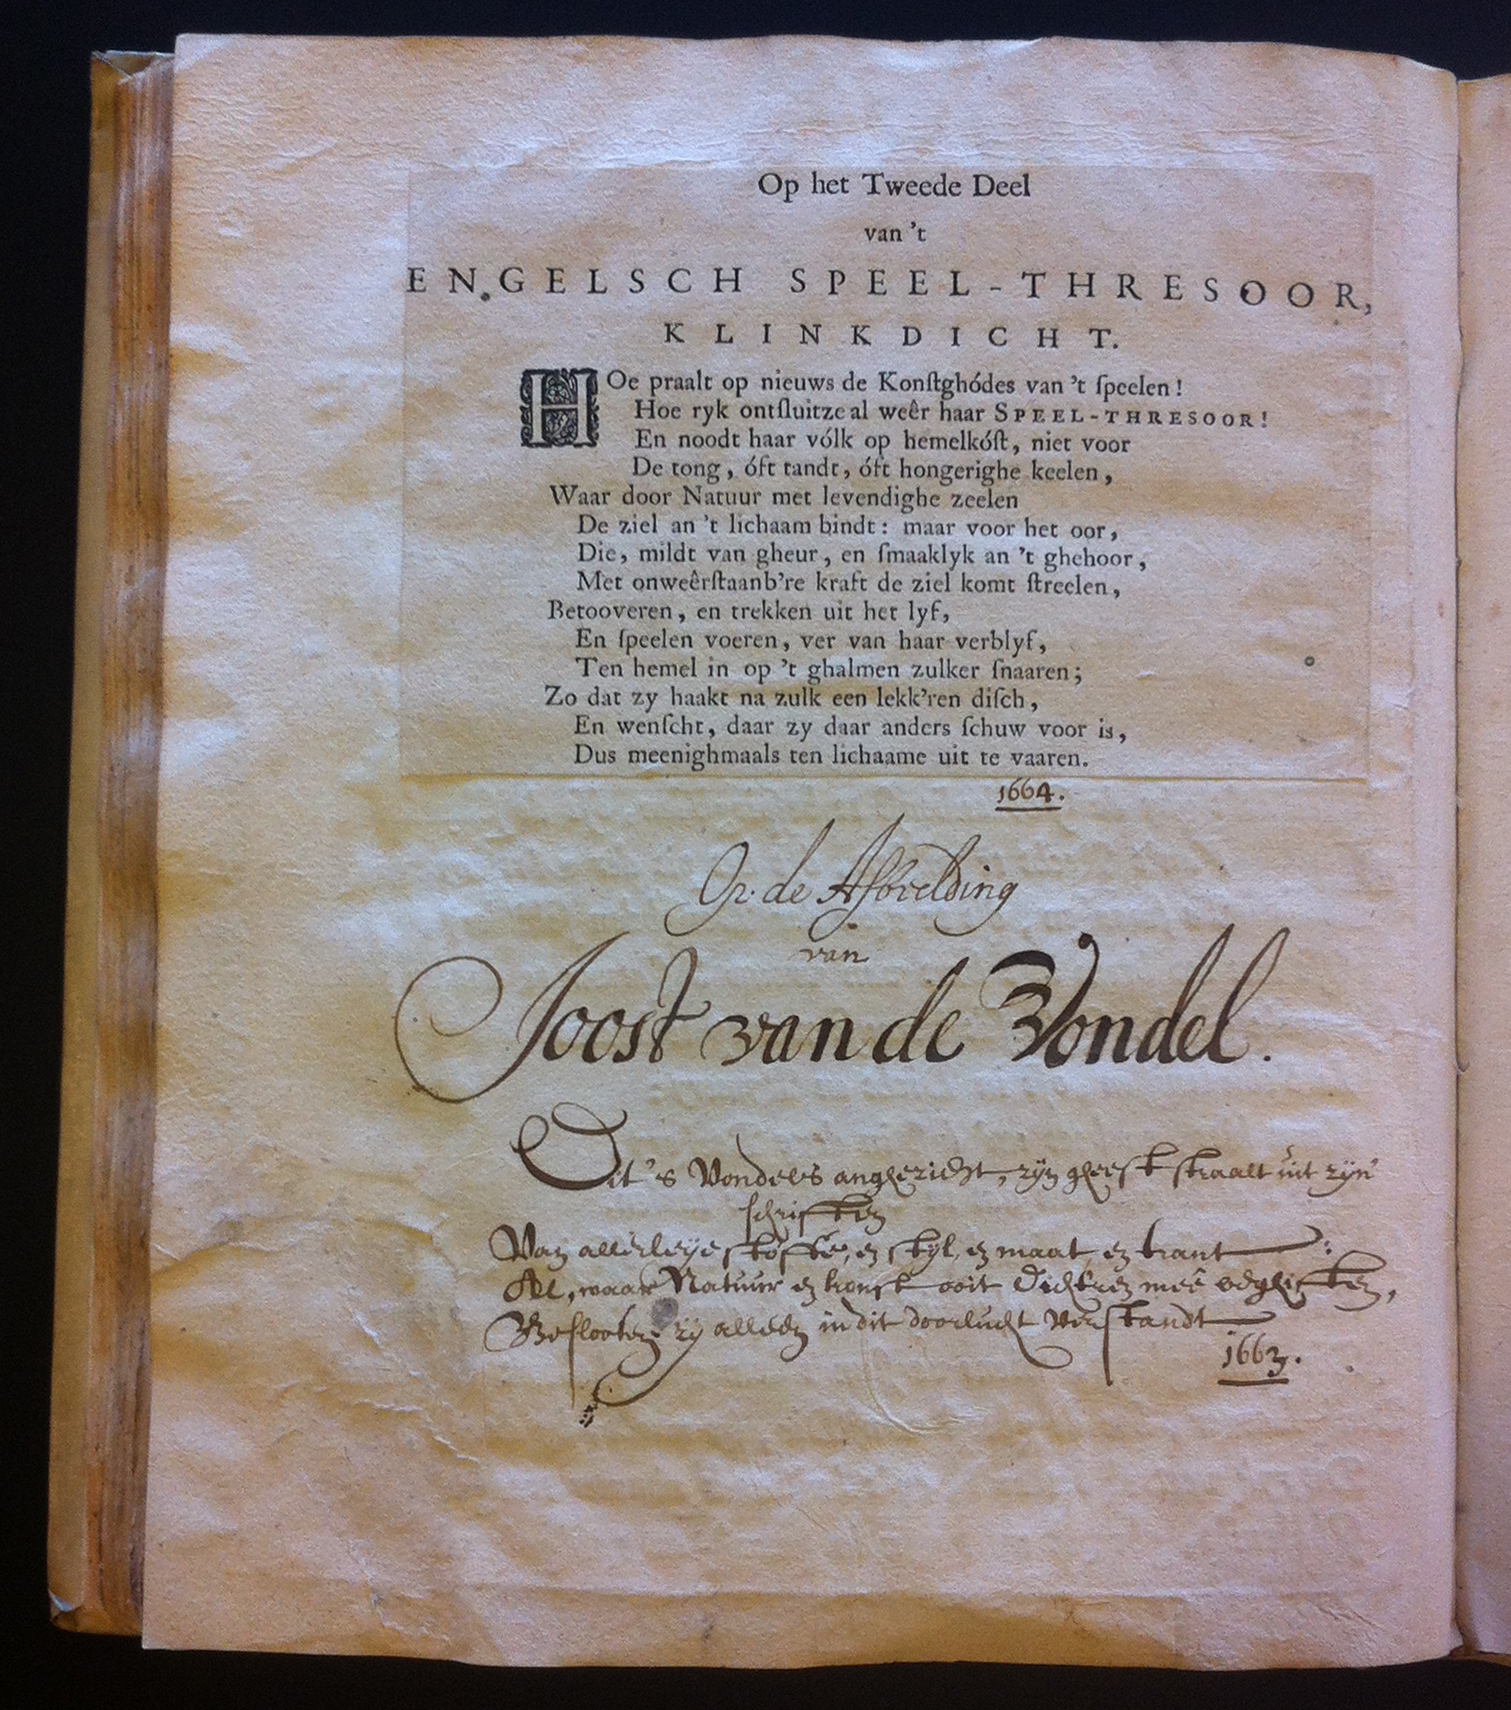 Op het Tweede Deel
van 't
ENGELSCH SPEEL-THRESOOR,
KLINKDICHT.
HOe praalt op nieuws de Konſtghódes van 't ſpeelen!
Hoe ryk ontſluitze al weêr haar SPEEL-THRESOOR!
En noodt haar vólk op hemelkóſt, niet voor
De tong, óft tandt, óft hongerighe keelen,
Waar door Natuur met levendighe zeelen
De ziel an 't lichaam bindt: maar voor het oor,
Die, mildt van gheur, en ſmaaklyk an 't ghehoor,
Met onweêrſtaanb're kraft de ziel komt ſtreelen,
Betooveren, en trekken uit het lyf,
En ſpeelen voeren, ver van haar verblyf,
Ten hemel in op 't ghalmen zulker ſnaaren;
Zo dat zy haakt na zulk een lekk'ren diſch,
En wenſcht, daar zy daar anders ſchuw voor is,
Dus meenighmaals ten lichaame uit te vaaren.
1664.
Op de Afbeelding
van
Joost van de Vondel.
Dit 's Vondels angezicht, zijn gheest straalt uit zijn'
schriften
Van allerleije stoffe, en stijl, en maat, en trant:
Al, waar Natuur en konst ooit Dichtren meê beghiften,
Beslooten zij alleen in dit doorlucht verstandt
1663.